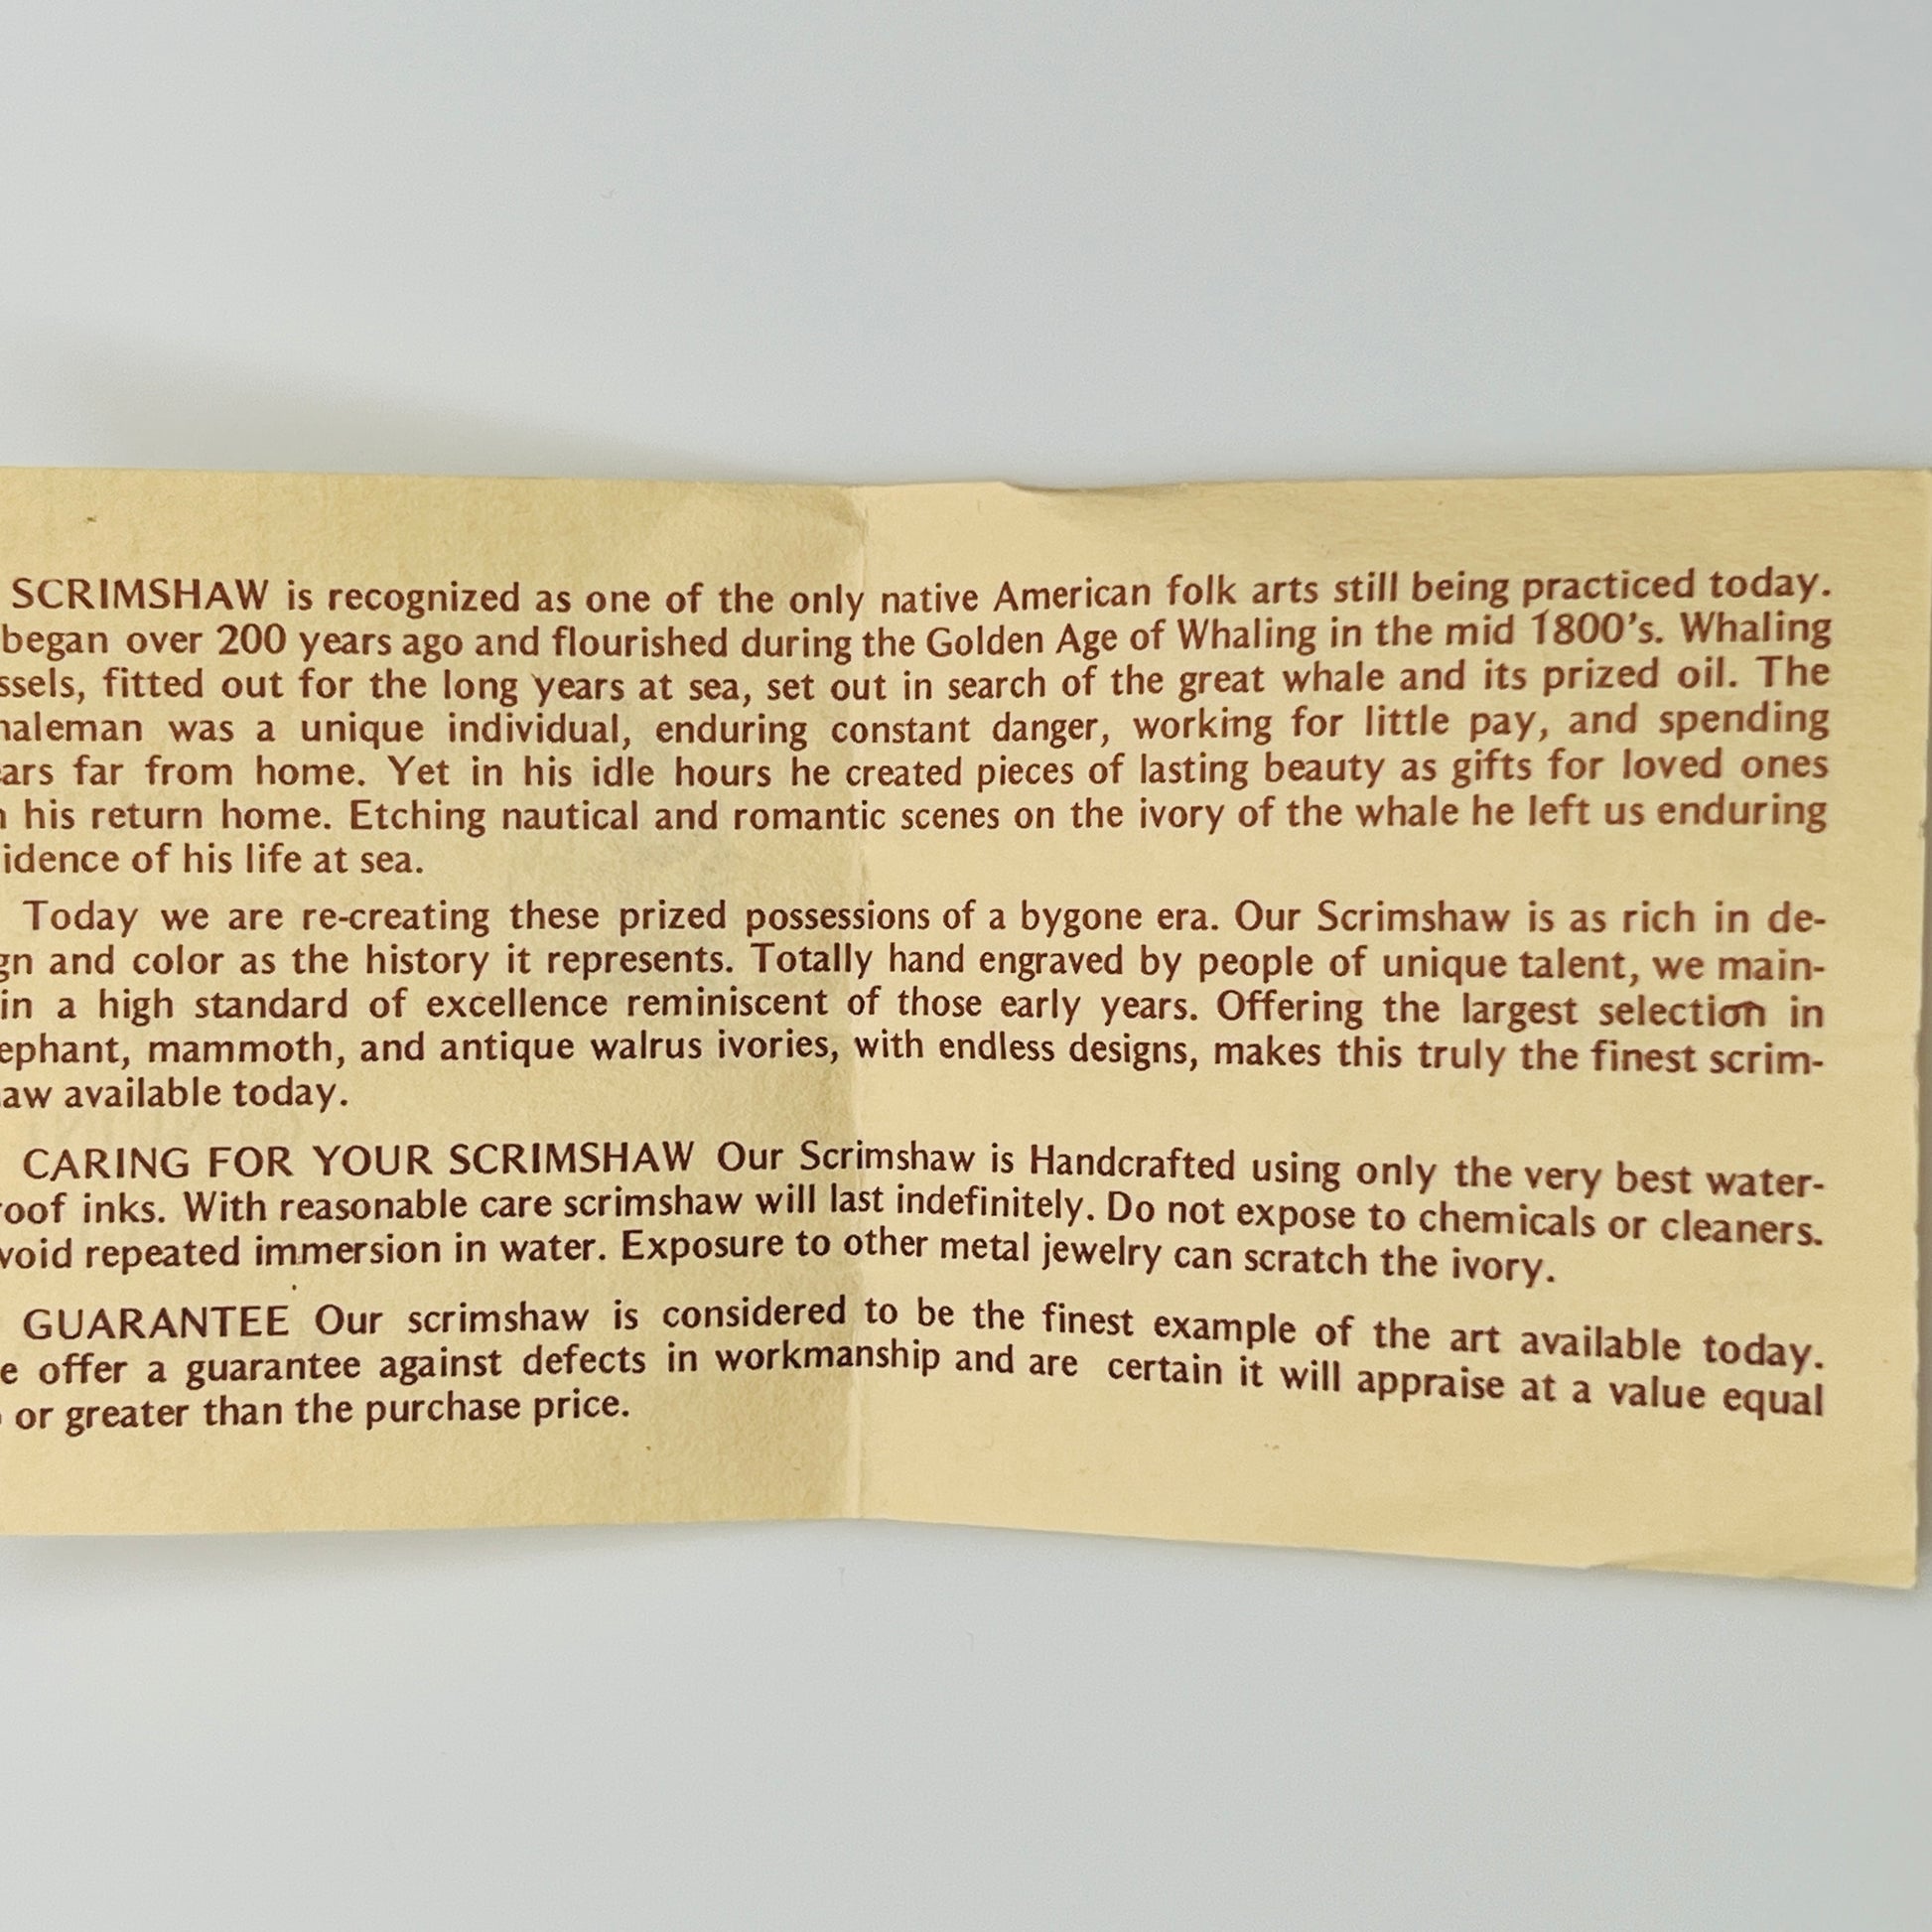 SCRIMSHAW is recognized as one of the only native American folk arts still being practiced today.
began over 200 years ago and flourished during the Golden Age of Whaling in the mid 1800's. Whaling
ssels, fitted out for the long years at sea, set out in search of the great whale and its prized oil. The
haleman was a unique individual, enduring constant danger, working for little pay, and spending
ars far from home. Yet in his idle hours he created pieces of lasting beauty as gifts for loved ones
n his return home. Etching nautical and romantic scenes on the ivory of the whale he left us enduring
idence of his life at sea.
Today we are re-creating these prized possessions of a bygone era. Our Scrimshaw is as rich in de-
gn and color as the history it represents. Totally hand engraved by people of unique talent, we main-
in a high standard of excellence reminiscent of those early years. Offering the largest selection in
ephant, mammoth, and antique walrus ivories, with endless designs, makes this truly the finest scrim-
aw available today.
CARING FOR YOUR SCRIMSHAW Our Scrimshaw is Handcrafted using only the very best water-
oof inks. With reasonable care scrimshaw will last indefinitely. Do not expose to chemicals or cleaners.
void repeated immersion in water. Exposure to other metal jewelry can scratch the ivory.
GUARANTEE Our scrimshaw is considered to be the finest example of the art available today.
e offer a guarantee against defects in workmanship and are certain it will appraise at a value equal
or greater than the purchase price.